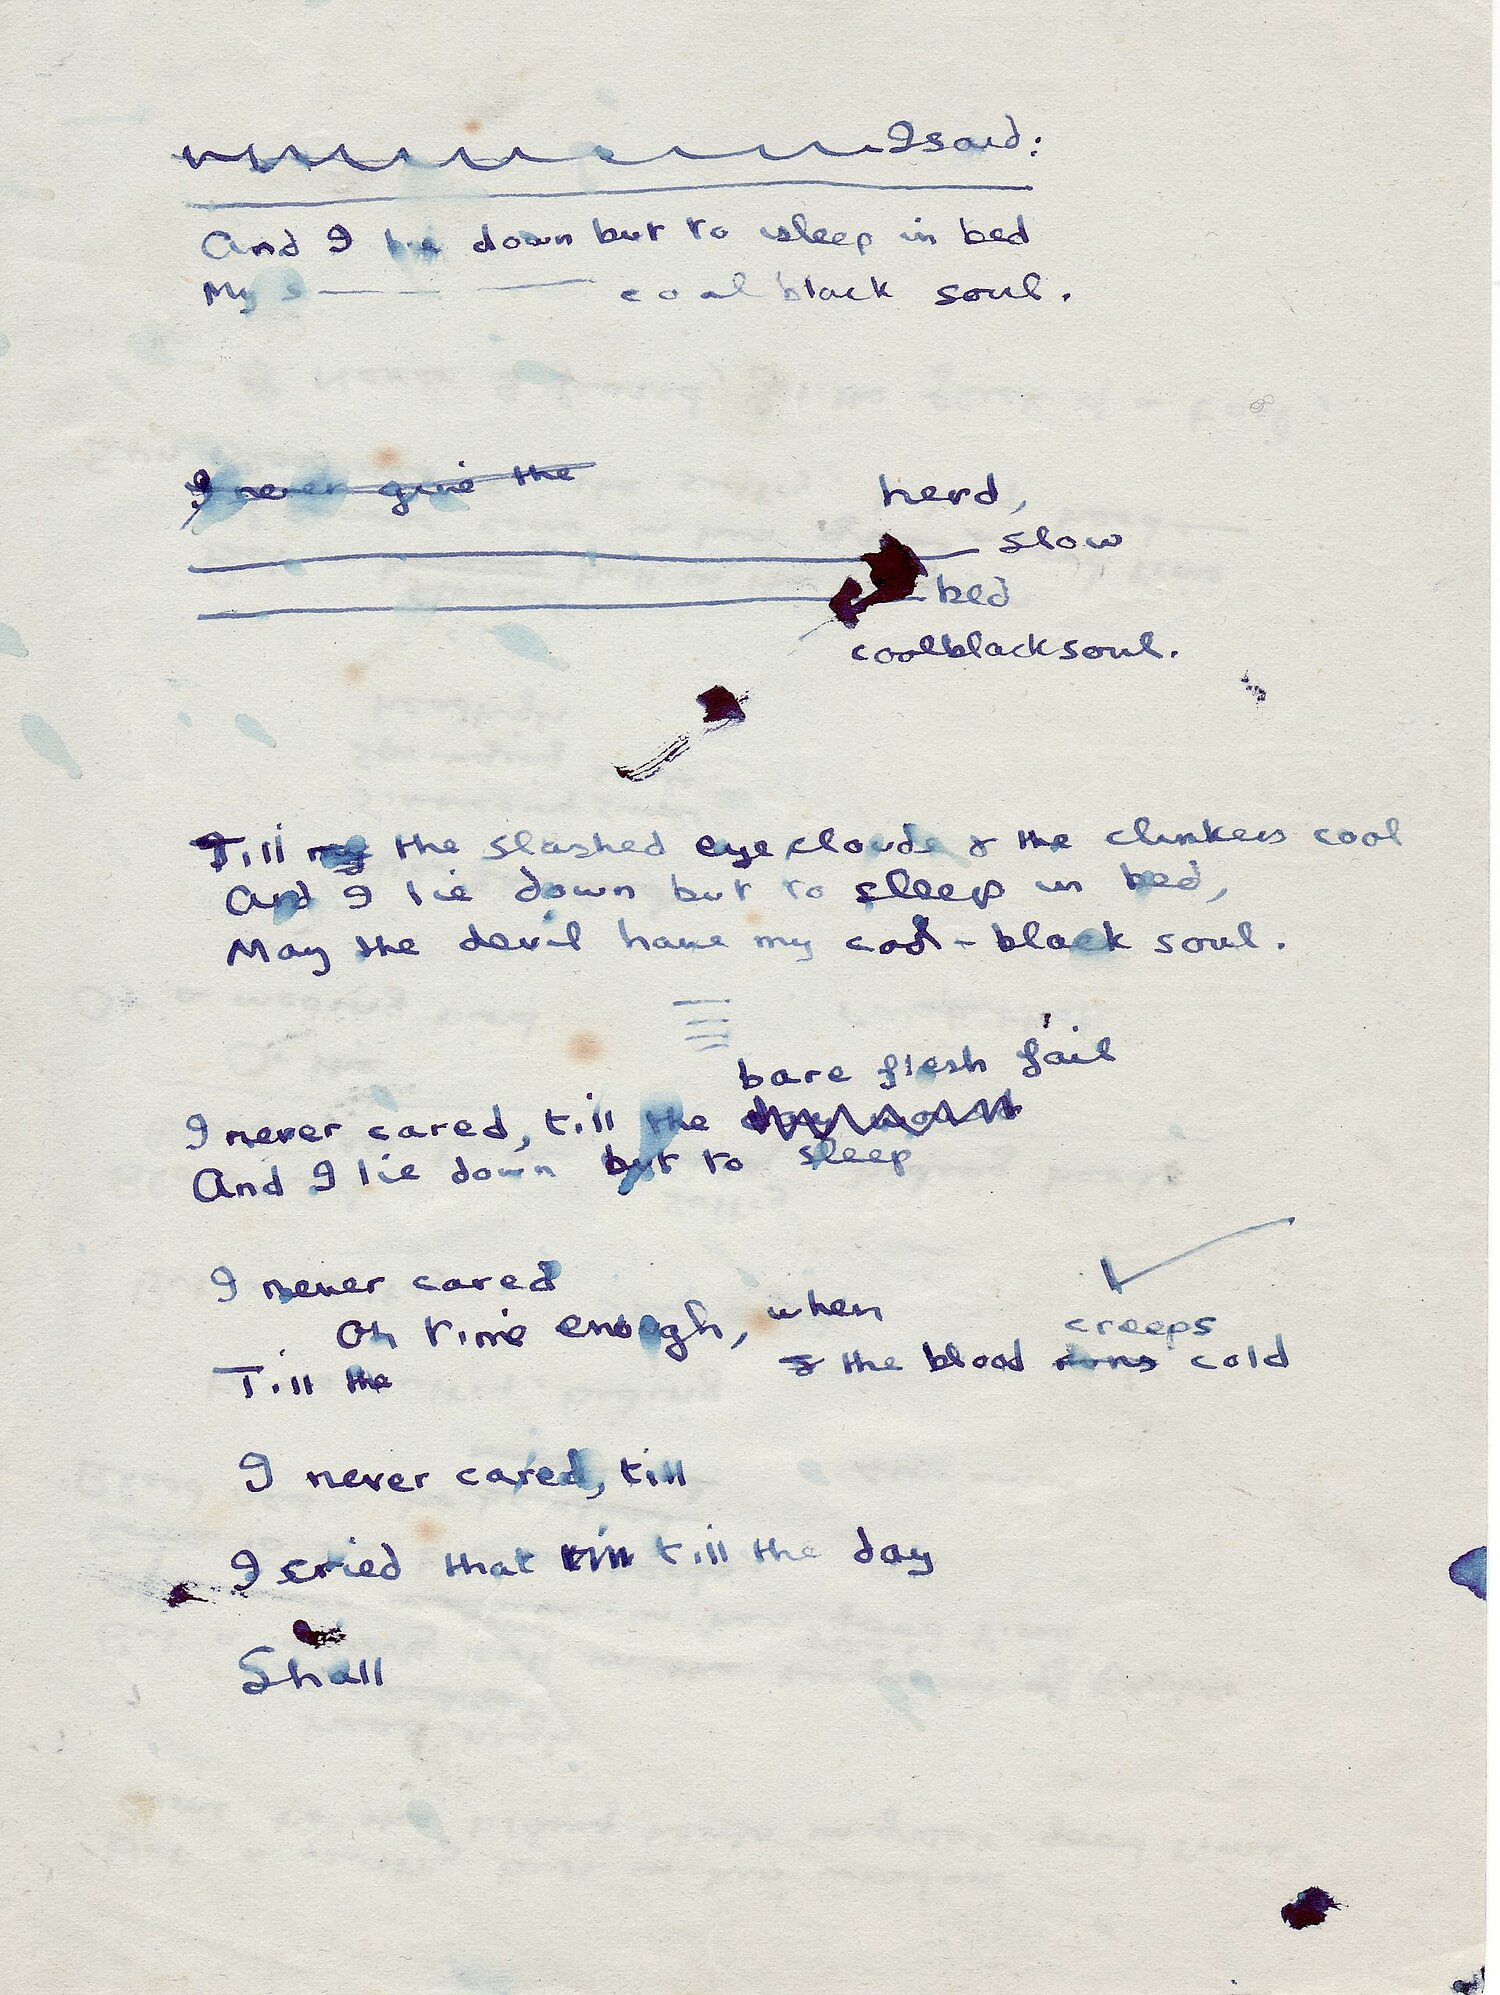 I said:
And I lie down but to sleep in bed
My s coal black soul.
I never give the
herd,
slow
bed
coalblack soul.
Till my the slashed eye clouds & the clinkers cool
And I lie down but to sleep in bed,
May the devil have my coal-black soul.
bare flesh fail
I never cared, till the
And I lie down but to sleep
I never cared
Oh time enough, when
creeps
& the blood runs cold
Till the
I never cared, till
I cried that till till the day
Shall